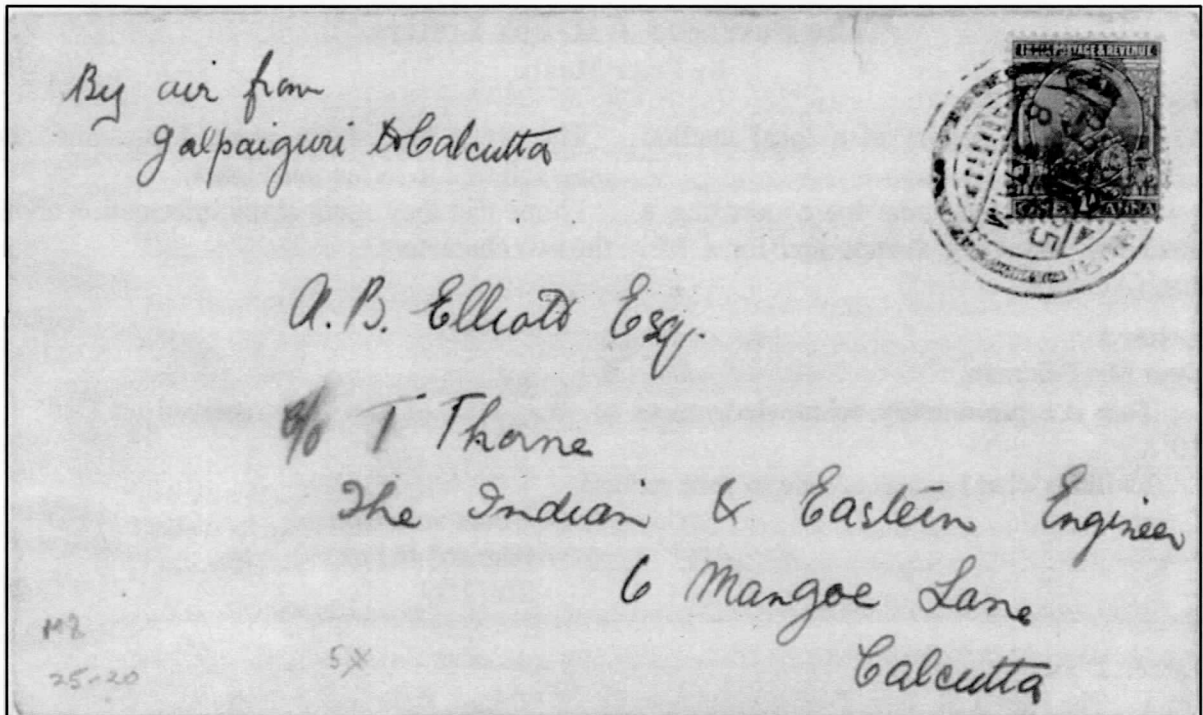 By air from
Jalpaiguri to Calcutta
POSTAGE & REVENUE
A. B. Elliott Esq.
c/o T Thorne
The Indian & Eastern Engineer
6 Mangoe Lane
Calcutta
25-20